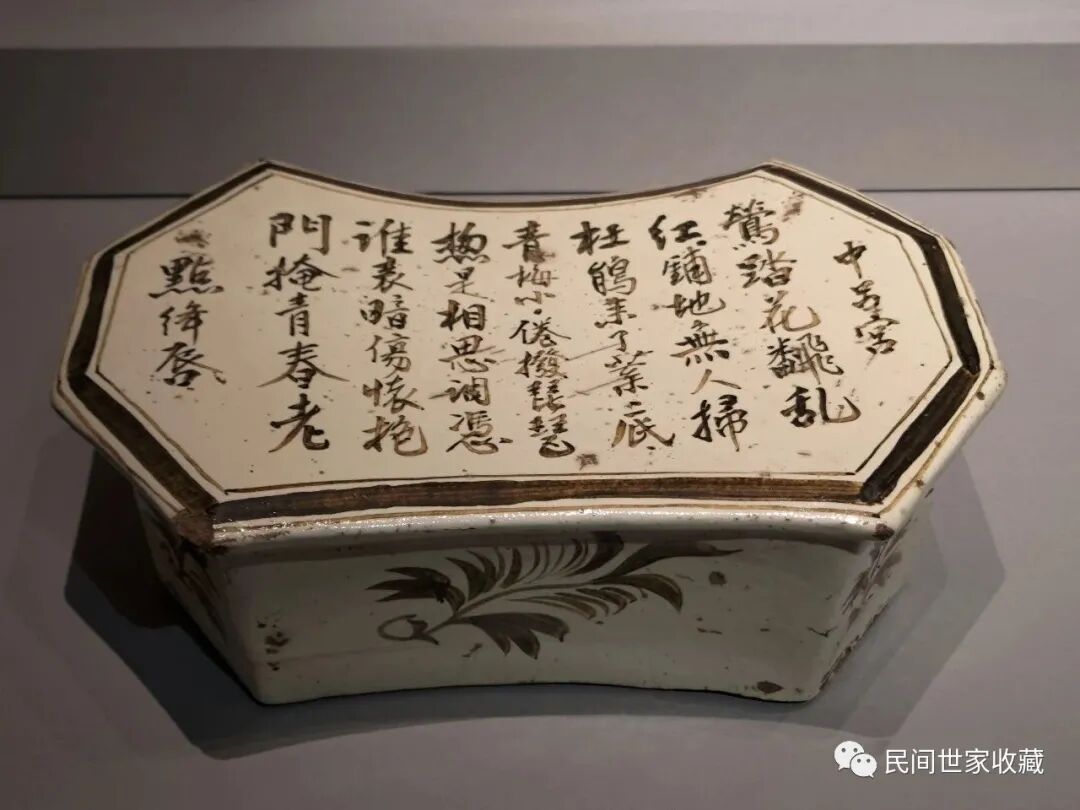 中呂宮
鶯踏花飜乱
紅鋪地無人掃
杜鵑来了葉底
青梅小倦撥琵琶
惣是相思調憑
誰表暗傷懷抱
門掩青春老
點絳唇
民间世家收藏